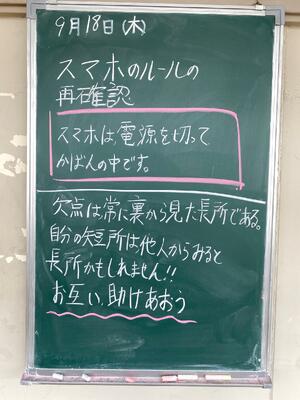 9月18日(木)
スマホのルールの
再確認
スマホは電源を切って
かばんの中です。
欠点は常に裏から見た長所である。
自分の短所は他人からみると
長所かもしれません!!
お互い、助けあおう